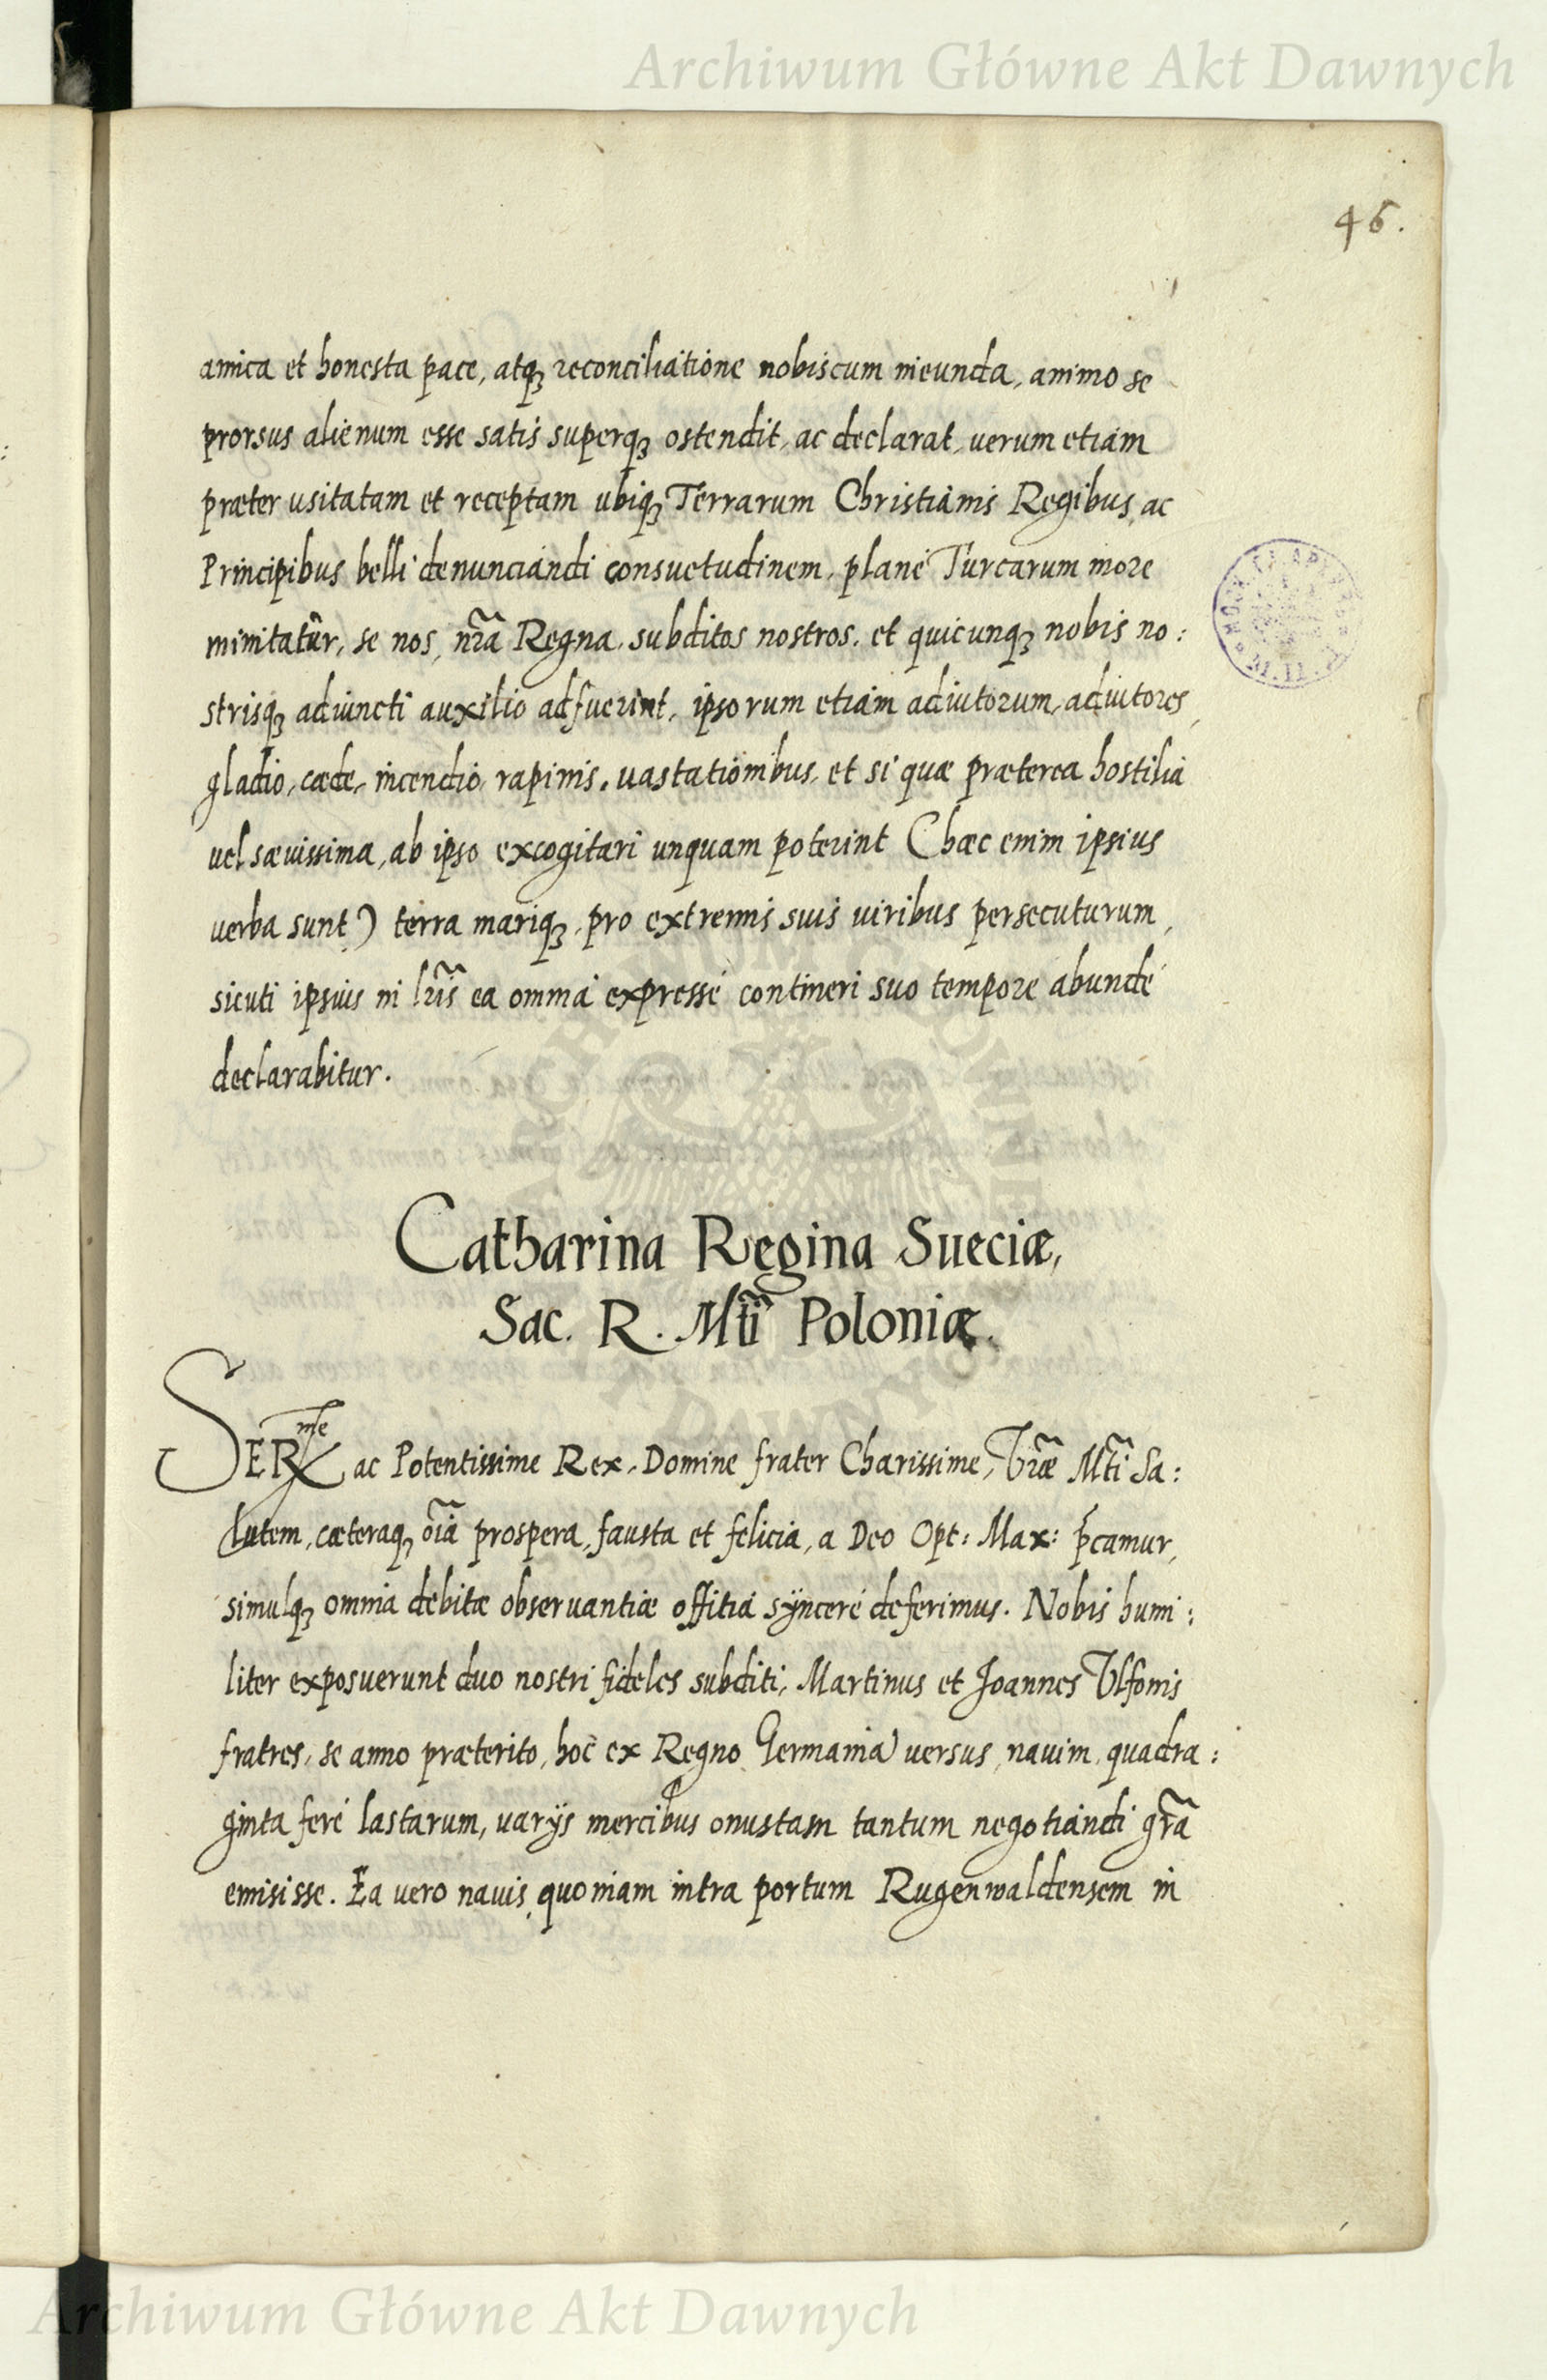 Archiwum Główne Akt Dawnych
46.
amica et honesta pace, atq₃ reconciliatione nobiscum ineunda, animo se
prorsus alienum esse satis superq₃ ostendit, ac declarat, uerum etiam
præter usitatam et receptam ubiq₃ Terrarum Christianis Regibus, ac
Principibus belli denunciandi consuetudinem, planè Turcarum more
minitatûr, se nos, nr̃a Regna, subditos nostros, et quicunq₃ nobis no:
strisq₃ adiuncti auxilio adfuerint, ipsorum etiam adiutorum, adiutores,
gladio, cæde, incendio, rapinis, uastationibus, et si quæ præterea hostilia
uel sæuissima, ab ipso excogitari unquam poterint (hæc enim ipsius
uerba sunt) terra mariq₃, pro extremis suis uiribus persecuturum,
sicuti ipsius in lr̃is ea omnia expressè contineri suo tempore abundè
declarabitur.
Catharina Regina Sueciæ,
Sac. R. Mt̃i Poloniæ.
SERme ac Potentissime Rex, Domine frater Charissime, Vr̃æ Mt̃i Sa:
lutem, cæteraq₃ oĩa prospera, fausta et felicia, a Deo Opt: Max: p̃camur,
simulq₃ omnia debitæ obseruantiæ offitia sÿncerè deferimus. Nobis humi:
liter exposuerunt duo nostri fideles subditi, Martinus et Joannes Vlfonis
fratres, se anno præterito, hoc ex Regno Germania uersus, nauim, quadra:
ginta ferè lastarum, varijs mercibus onustam tantum negotiandi gr̃a
emisisse. Ea vero nauis, quoniam intra portum Rugenwaldensem in
Archiwum Główne Akt Dawnych